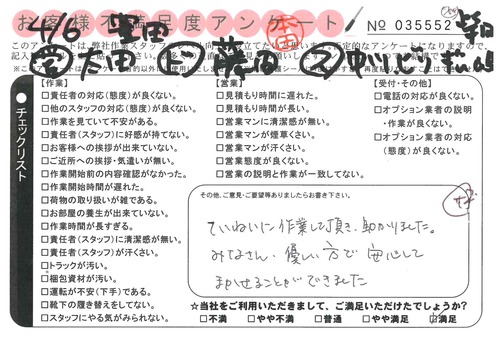 お客様不満足度アンケート
No 035552
4/6
【作業】
□責任者の対応(態度)が良くない。
□他のスタッフの対応(態度)が良くない。
□作業を見ていて不安がある。
□責任者(スタッフ)に好感が持てない。
□お客様への挨拶が出来ていない。
□ご近所への挨拶・気遣いが無い。
□作業開始前の内容確認がなかった。
□作業開始時間が遅れた。
□荷物の取り扱いが雑である。
□お部屋の養生が出来ていない。
□作業時間が長すぎる。
□責任者(スタッフ)に清潔感が無い。
□責任者(スタッフ)が汗くさい。
□トラックが汚い。
□梱包資材が汚い。
□運転が不安(下手)である。
□靴下の履き替えをしてない。
□スタッフにやる気がみられない。
【営業】
□見積もり時間に遅れた。
□見積もり時間が長い。
□営業マンに清潔感が無い。
□営業マンが煙草くさい。
□営業マンが汗くさい。
□営業態度が良くない。
□営業の説明と作業が一致してない。
【受付・その他】
□電話の対応が良くない。
□オプション業者の説明
・作業が良くない。
□オプション業者の対応
(態度)が良くない。
チェックリスト
その他、ご意見・ご要望等ありましたらお書き下さい。
ていねいに作業して頂き、助かりました。
みなさん、優しい方で安心して
まかせることができました
☆当社をご利用いただきまして、ご満足いただけたでしょうか?
□不満 □やや不満 □普通 □やや満足 ☑満足